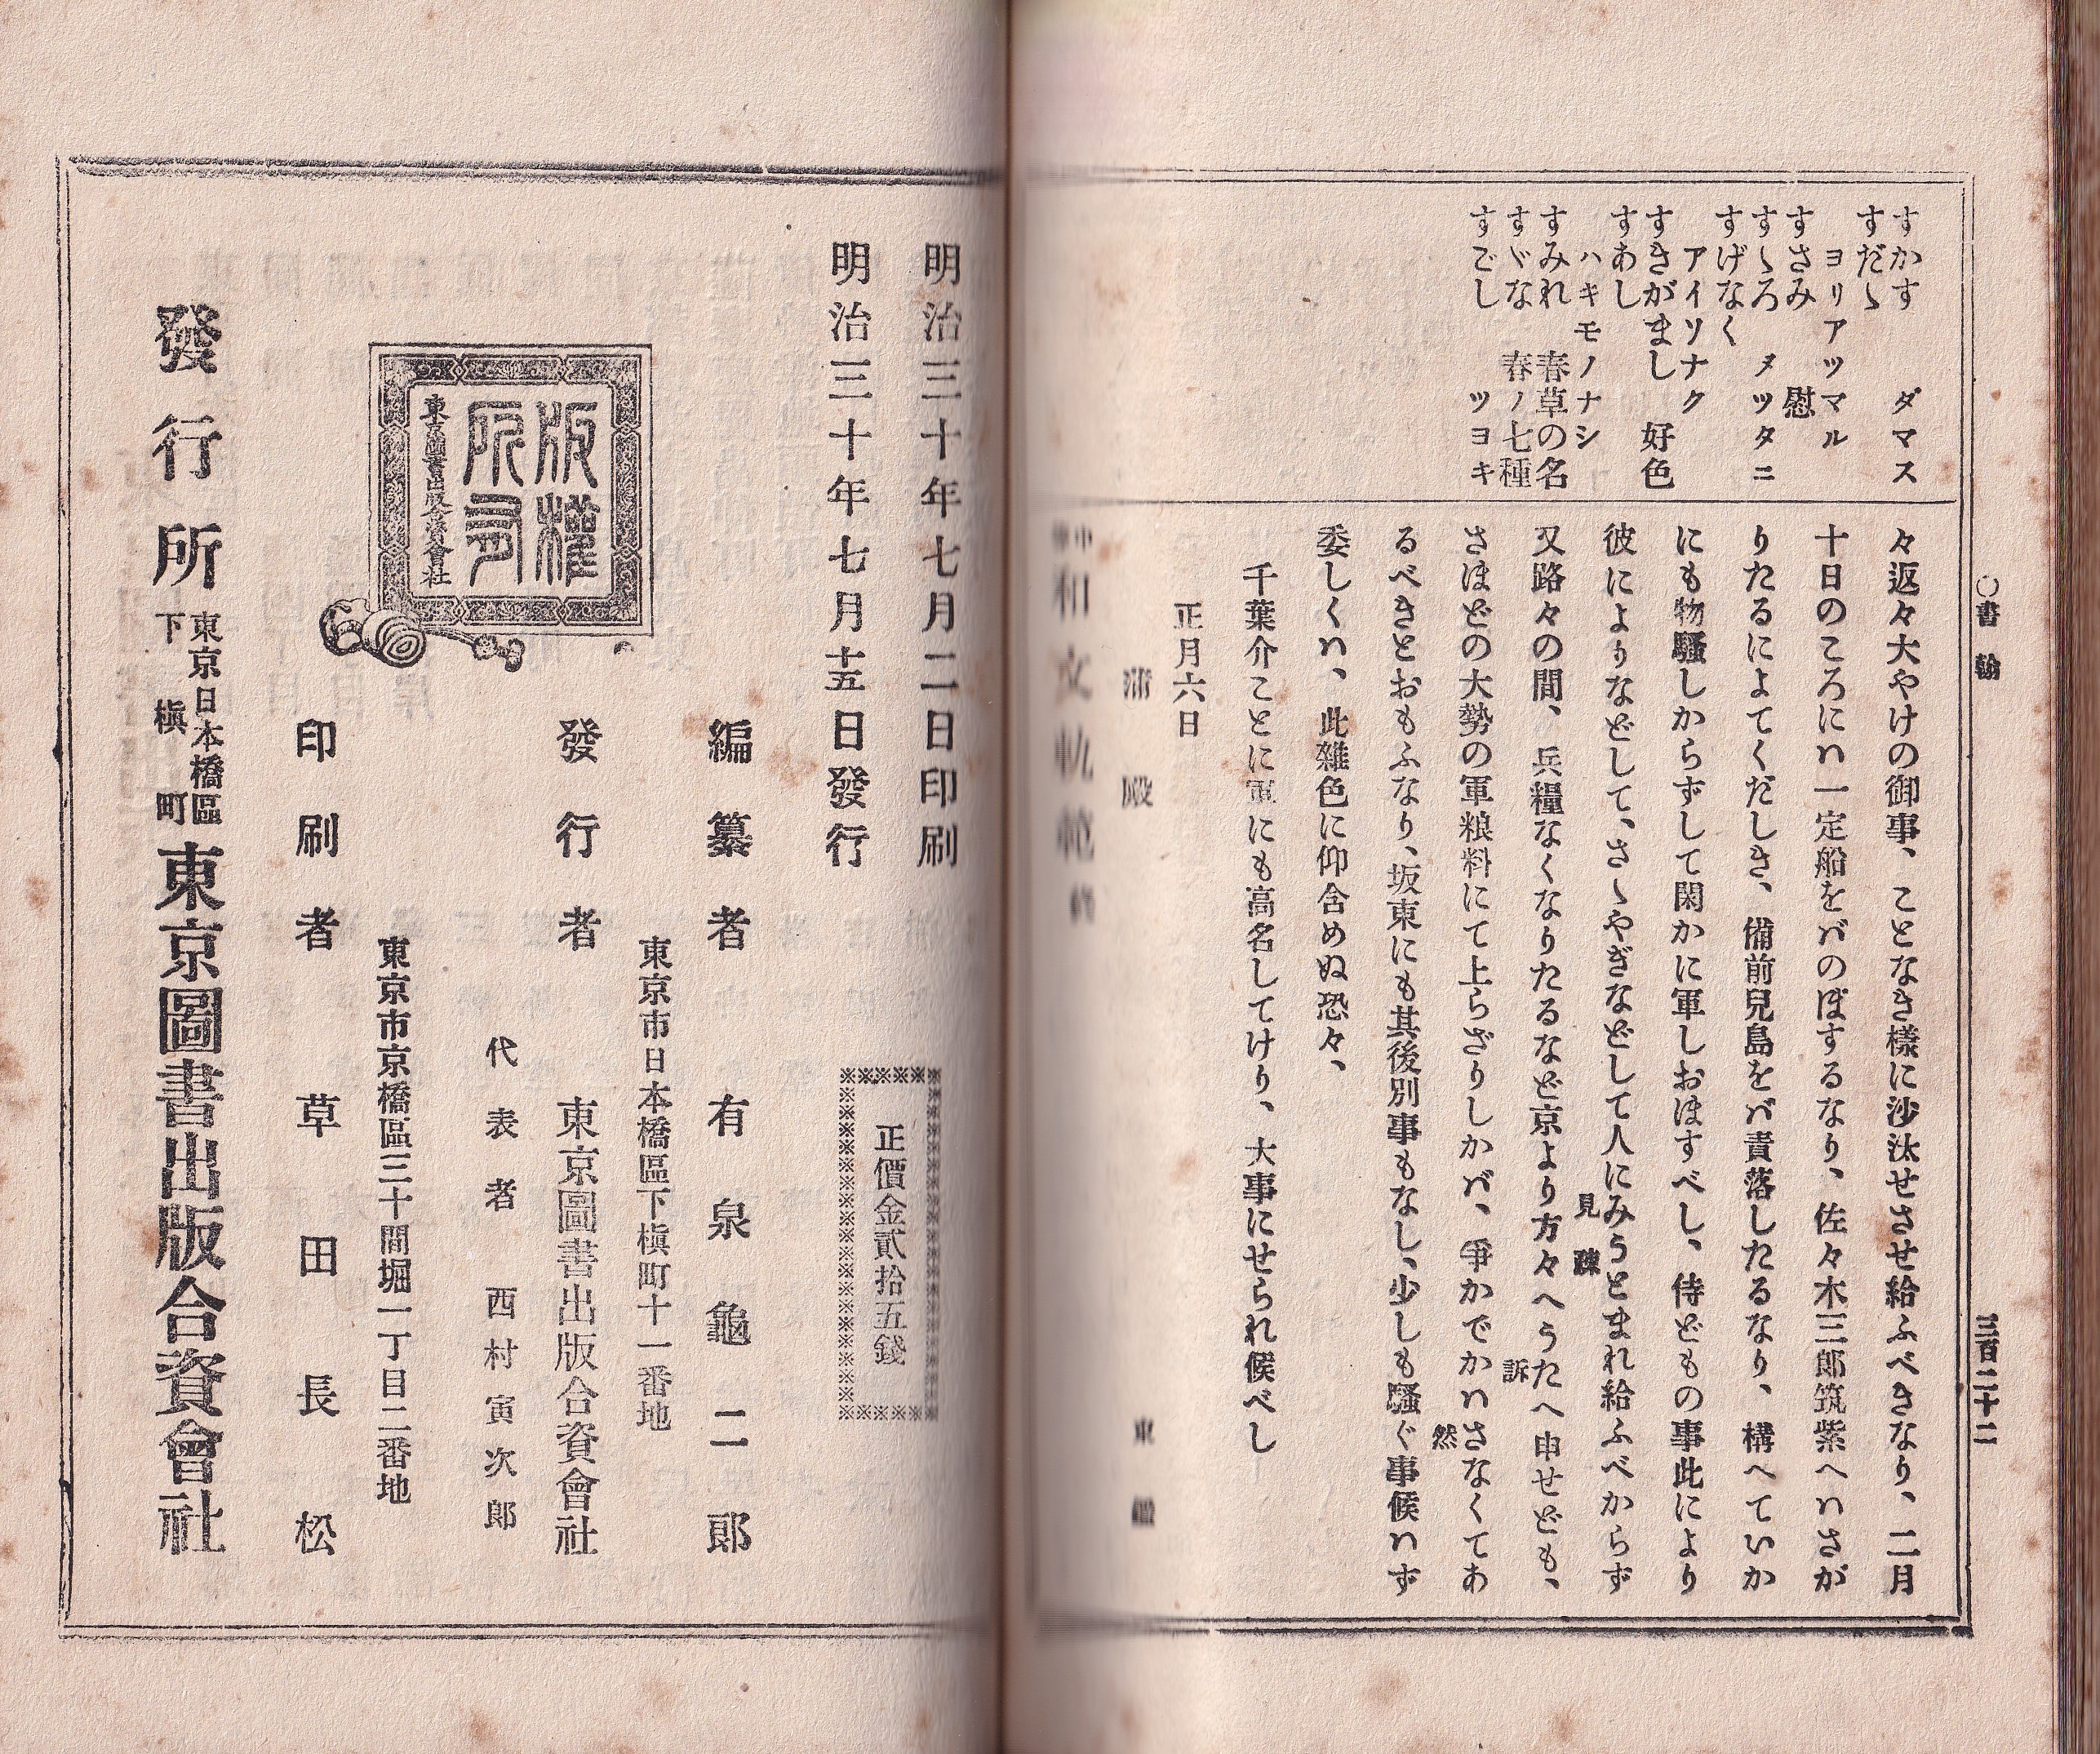 ○書翰
三百二十二
すかす　ダマス
すだゝ
ヨリアツマル
すさみ　慰
すゝろ　メツタニ
すげなく
アイソナク
すきがまし　好色
すあし
ハキモノナシ
すみれ　春草の名
すゞな　春ノ七種
すごし　ツヨキ
々返々大やけの御事、ことなき樣に沙汰せさせ給ふべきなり、二月
十日のころにハ一定船をバのぼするなり、佐々木三郎筑紫へハさが
りたるによてくだしき、備前兒島をバ責落したるなり、構へていか
にも物騷しからずして閑かに軍しおほすべし、侍どもの事此により
彼によりなどして、さゝやぎなどして人にみうとまれ給ふべからず
見疎
又路々の間、兵糧なくなりたるなど京より方々へうたへ申せども、
訴
さほどの大勢の軍粮料にて上らざりしかバ、爭かでかハさなくてあ
然
るべきとおもふなり、坂東にも其後別事もなし、少しも騷ぐ事候ハず
委しくハ、此雜色に仰含めぬ恐々、
千葉介ことに軍にも高名してけり、大事にせられ候べし
正月六日
蒲殿　東鑑
和文軌範終
明治三十年七月二日印刷
明治三十年七月十五日發行
正價金貳拾五錢
編纂者　有泉龜二郎
東京市日本橋區下槇町十一番地
發行者　東京圖書出版合資會社
代表者　西村寅次郎
東京市京橋區三十間堀一丁目二番地
印刷者　草田長松
版權
所有
東京圖書出版合資會社
發行所　東京日本橋區下槇町　東京圖書出版合資會社